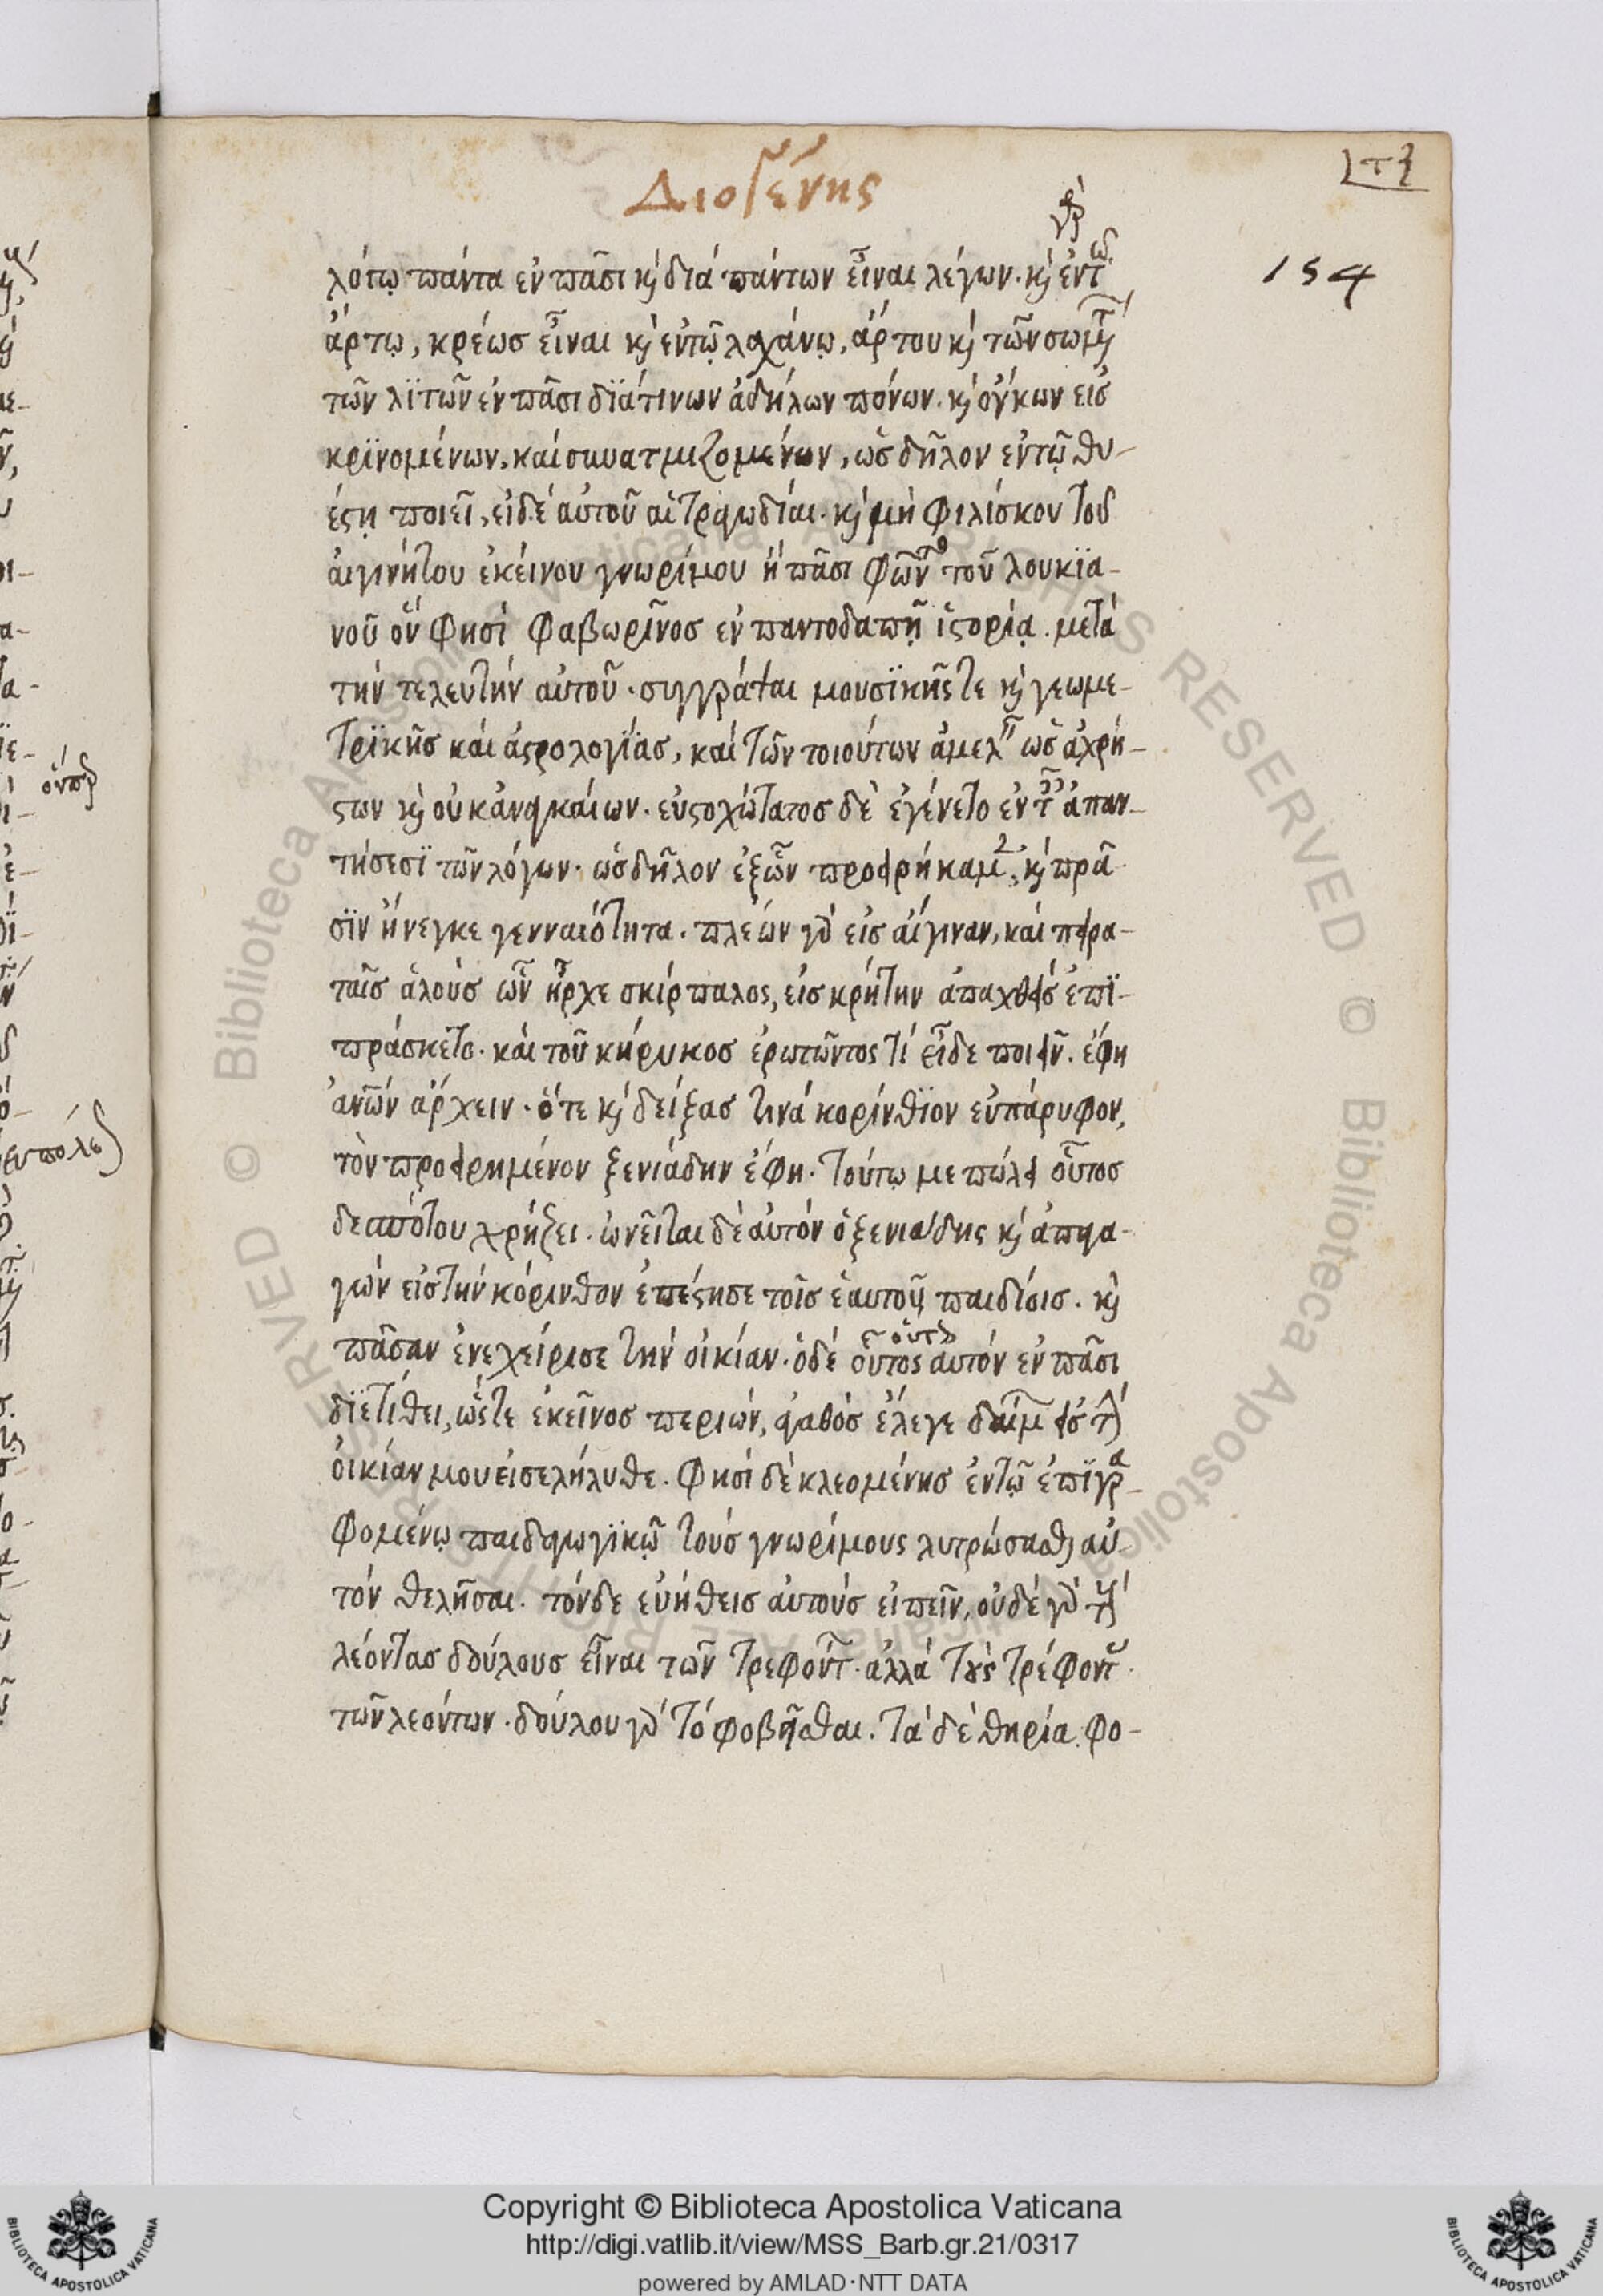 Διογένης
154
λόγῳ πάντα ἐν πᾶσι κ̀ διὰ πάντων εἶναι λέγων. κ̀ ἐν τῷ
ἄρτῳ, κρέως εἶναι κ̀ ἐν τῷ λαχάνῳ, ἄρτου κ̀ τῶν σωμτ
τῶν λϊτῶν ἐν πᾶσι δϊάτινων ἀδήλων πόνων. κ̀ ὄγκων εἰσ
κρϊνομένων, καὶ συνατμιζομένων, ὡς δῆλον ἐν τῷ θυ-
έστῃ ποιεῖ, εἰ δὲ αὐτοῦ αἱ τραγωδίαι. κ̀ μὴ Φιλίσκου τοῦ
αἰγινήτου ἐκείνου γνωρίμου ἢ πᾶσι φῶντο τοῦ λουκϊα-
νοῦ ὅν φησὶ Φαβωρῖνος ἐν παντοδαπῇ ἱστορίᾳ. μετὰ
τὴν τελευτὴν αὐτοῦ. συγγράψαι μουσϊκῆς τε κ̀ γεωμε-
τρϊκῆς καὶ ἀστρολογϊας, καὶ τῶν τοιούτων ἀμελ ὡς ἀχρή-
στων κ̀ οὐκ ἀναγκαίων. εὐστοχώτατος δὲ ἐγένετο ἐν τ ἀπαν-
τήσεσϊ τῶν λόγων. ὡς δῆλον ἐξ ὧν προειρήκαμ, κ̀ πρᾶ
σϊν ἤνεγκε γενναιότητα. πλέων γὰρ εἰς αἴγιναν, καὶ πειρα-
ταῖς ἁλοὺς ὧν ἦρχε σκίρπαλος, εἰς κρήτην ἀπαχθεὶς ἐπϊ-
πράσκετο. καὶ τοῦ κήρυκος ἐρωτῶντος τί εἶδε ποιεῖν. ἔφη
ἀνῶν ἄρχειν. ὅτε κ̀ δείξας τινὰ κορίνθϊον εὐπάρυφον,
τὸν προειρημένον ξενιάδην ἔφη. τούτῳ με πώλει οὗτος
δεσπότου χρήζει. ὠνεῖται δὲ αὐτὸν ὁ ξενιάδης κ̀ ἀπαγα-
γὼν εἰς τὴν κόρινθον ἐπέστησε τοῖς ἑαυτοῦ παιδίοις. κ̀
πᾶσαν ἐνεχείρισε τὴν οἰκίαν. ὁ δὲ οὗτος αὐτὸν ἐν πᾶσι
δϊετίθει, ὥστε ἐκεῖνος περιὼν, ἀγαθὸς ἔλεγε δαίμ εἰς τ
οἰκίαν μου εἰσελήλυθε. φησὶ δὲ κλεομένης ἐν τῷ ἐπϊγρα-
φομένῳ παιδαγωγϊκῷ τοὺς γνωρίμους λυτρώσασθ αὐ
τὸν θελῆσαι. τόνδε εὐήθεις αὐτοὺς εἰπεῖν, οὐδὲ γὰρ τ
λέοντας δούλους εἶναι τῶν τρεφόντ. ἀλλὰ τοὺς τρέφοντ.
τῶν λεόντων. δούλου γὰρ τὸ φοβῆσθαι. τὰ δὲ θηρία φο-
Copyright © Biblioteca Apostolica Vaticana
http://digi.vatlib.it/view/MSS_Barb.gr.21/0317
powered by AMLAD·NTT DATA